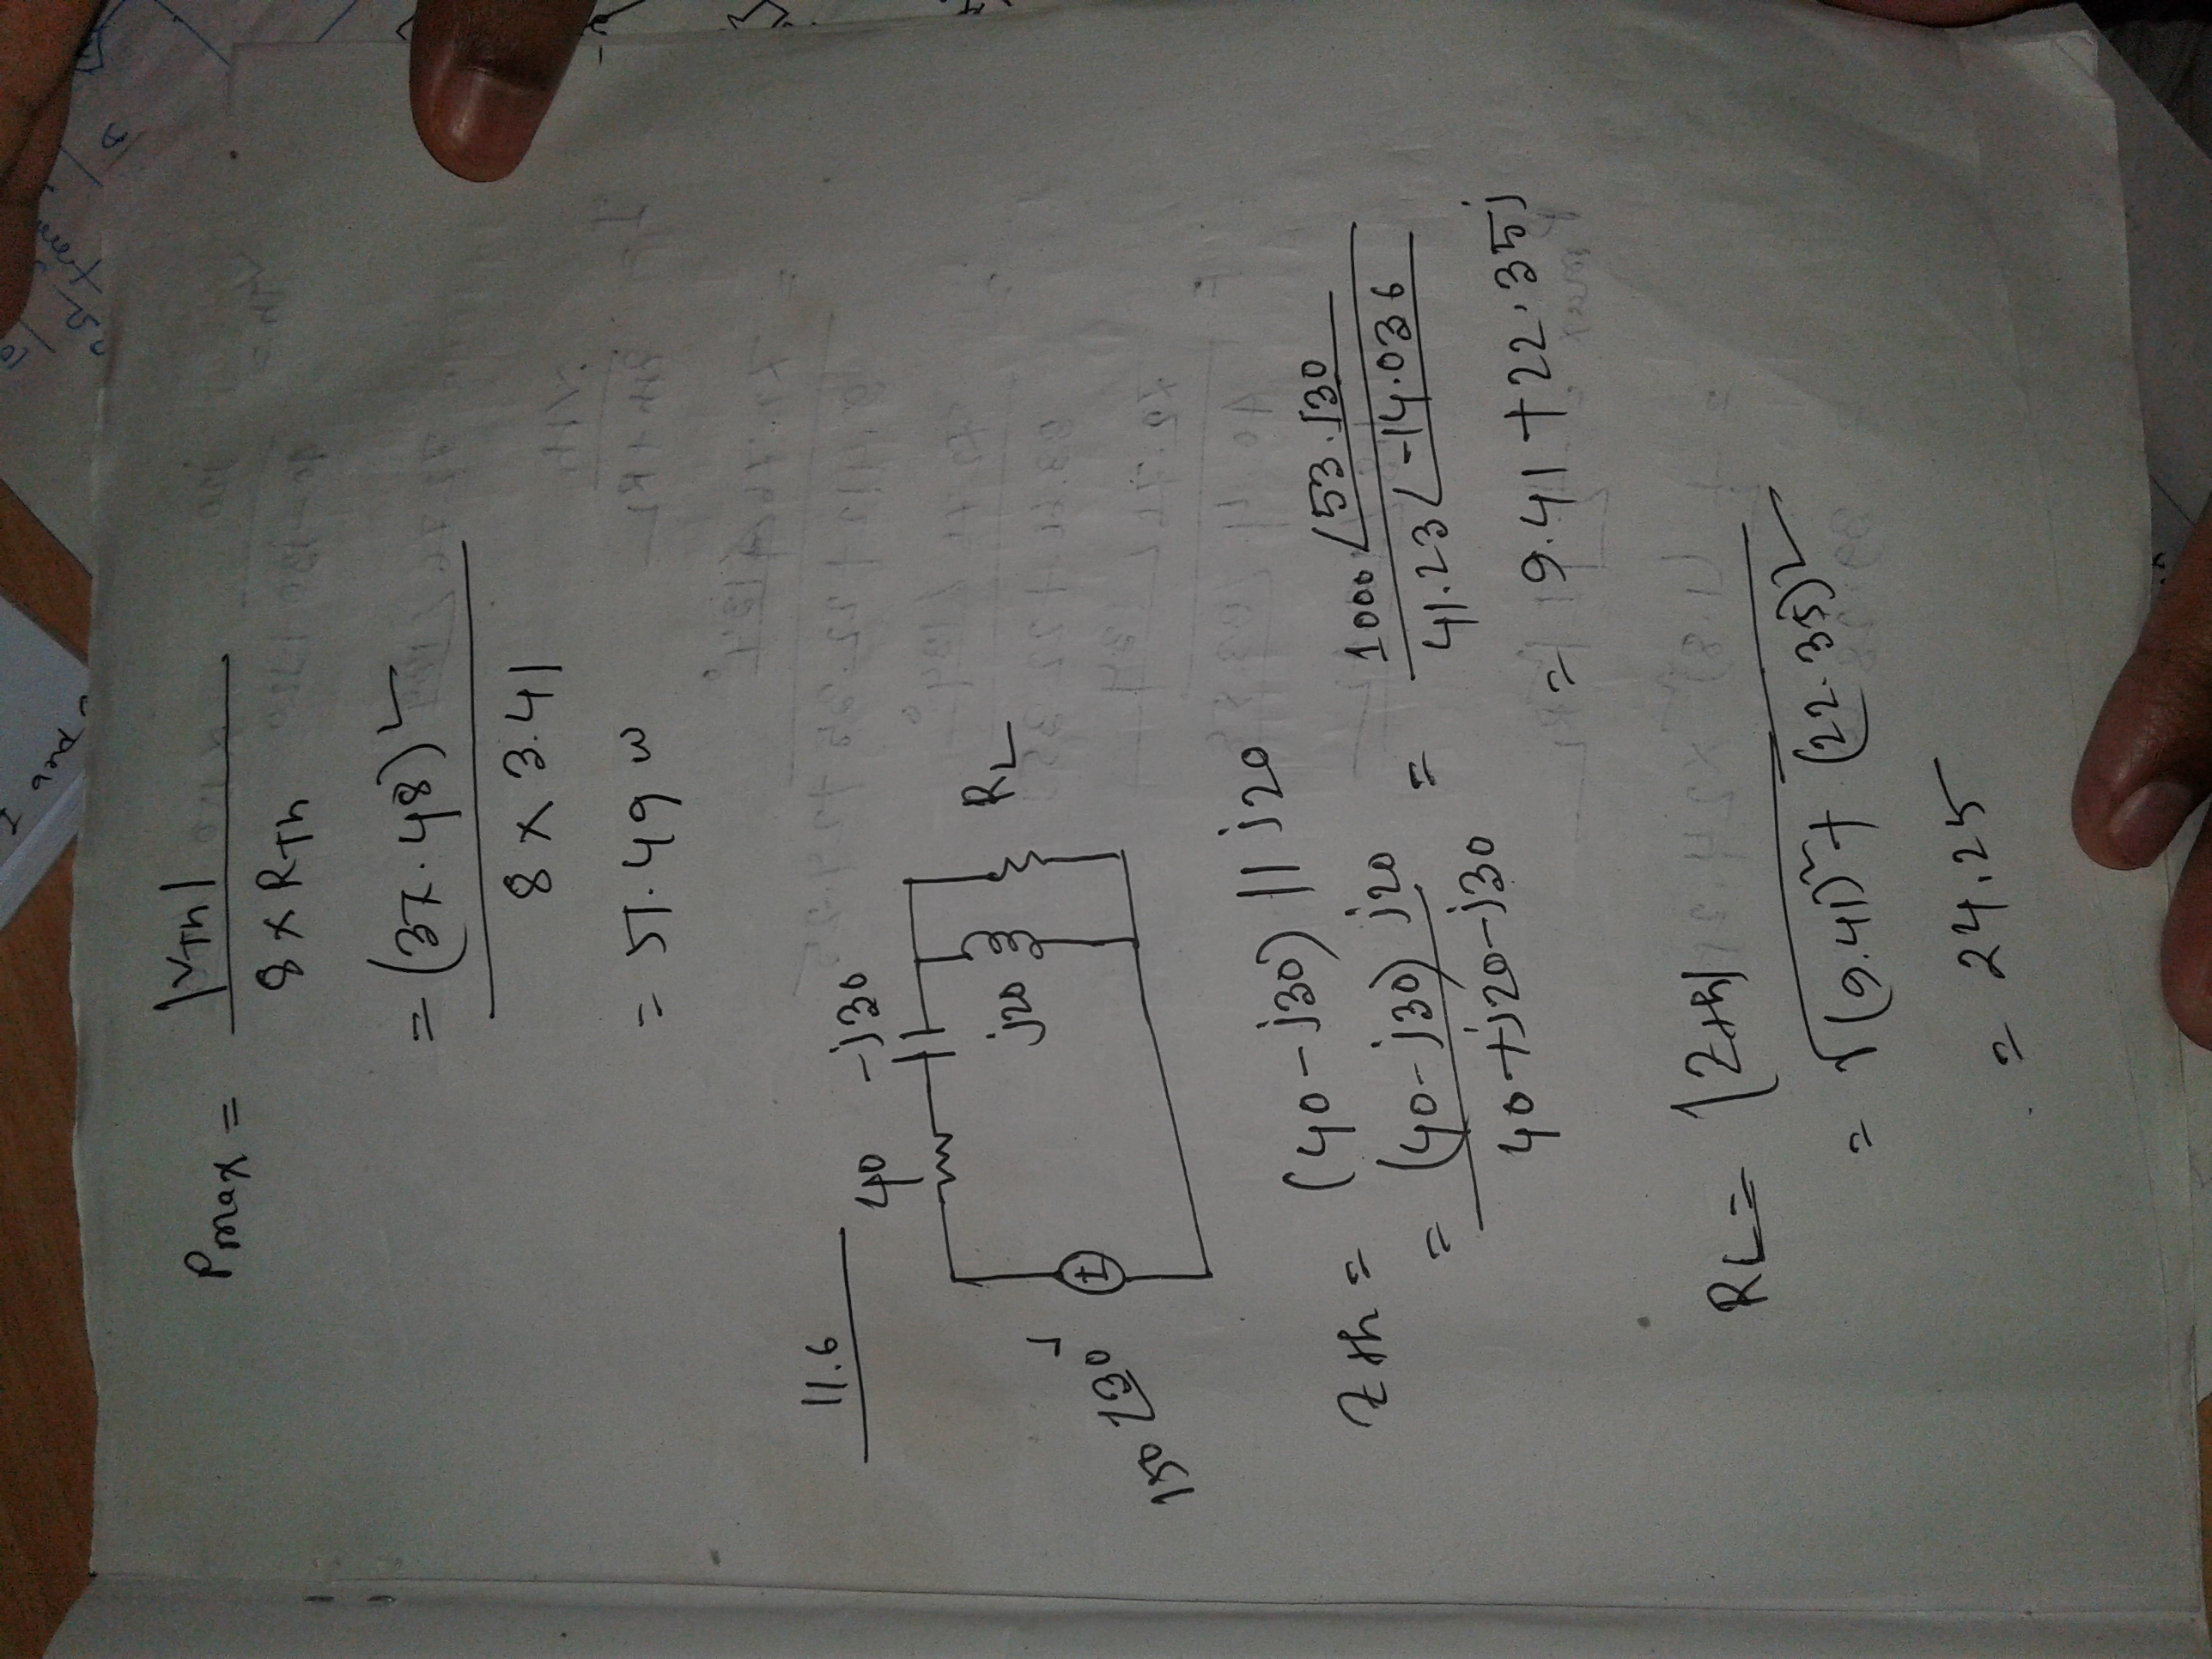 Pmax = |VTh| / 8 × RTh
= (37.48)² / 8 × 3.41
= 51.49 w
11.6
40 -j30
j20 RL
150∠30° V
±
Zth = (40-j30) || j20
= (40-j30) j20 / 40+j20-j30 = 1000∠53.130 / 41.23∠-14.036
= 9.41 + 22.35j
RL = |Zth|
= √(9.41)² + (22.35)²
= 24.25